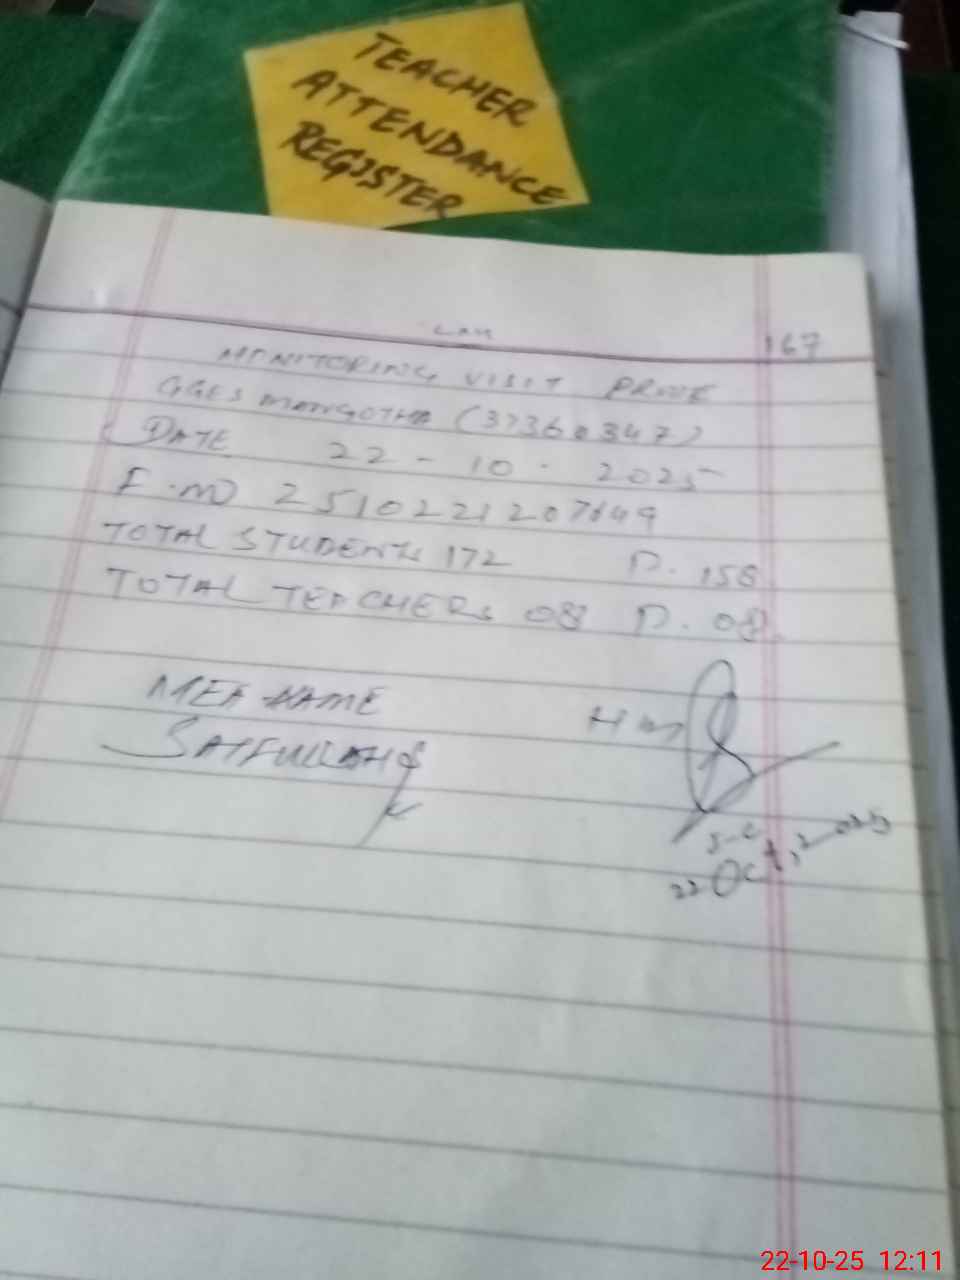 TEACHER
ATTENDANCE
REGISTER
167
MONITORING VISIT PROOF
GGES MANGOTHA (37360347)
DATE 22-10-2025
TOTAL STUDENTS 172 P. 158
TOTAL TEACHERS 08 P. 08
MEA NAME
SAIFULLAH
22 Oct, 2025
22-10-25 12:11